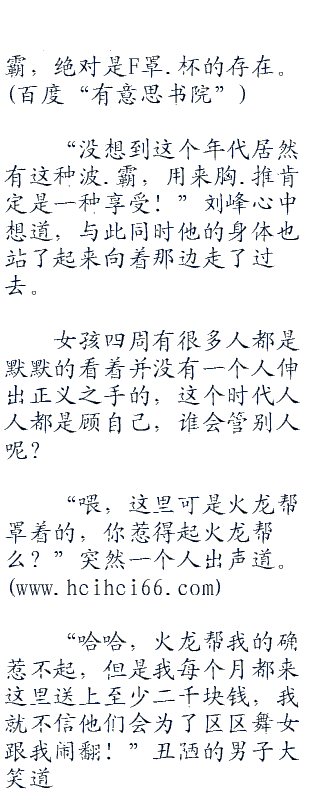 霸，绝对是F罩.杯的存在。
(百度“有意思书院”)
“没想到这个年代居然
有这种波.霸，用来胸.推肯
定是一种享受！”刘峰心中
想道，与此同时他的身体也
站了起来向着那边走了过
去。
女孩四周有很多人都是
默默的看着并没有一个人伸
出正义之手的，这个时代人
人都是顾自己，谁会管别人
呢？
“喂，这里可是火龙帮
罩着的，你惹得起火龙帮
么？”突然一个人出声道。
(www.hcihci66.com)
“哈哈，火龙帮我的确
惹不起，但是我每个月都来
这里送上至少二千块钱，我
就不信他们会为了区区舞女
跟我闹翻！”丑陋的男子大
笑道